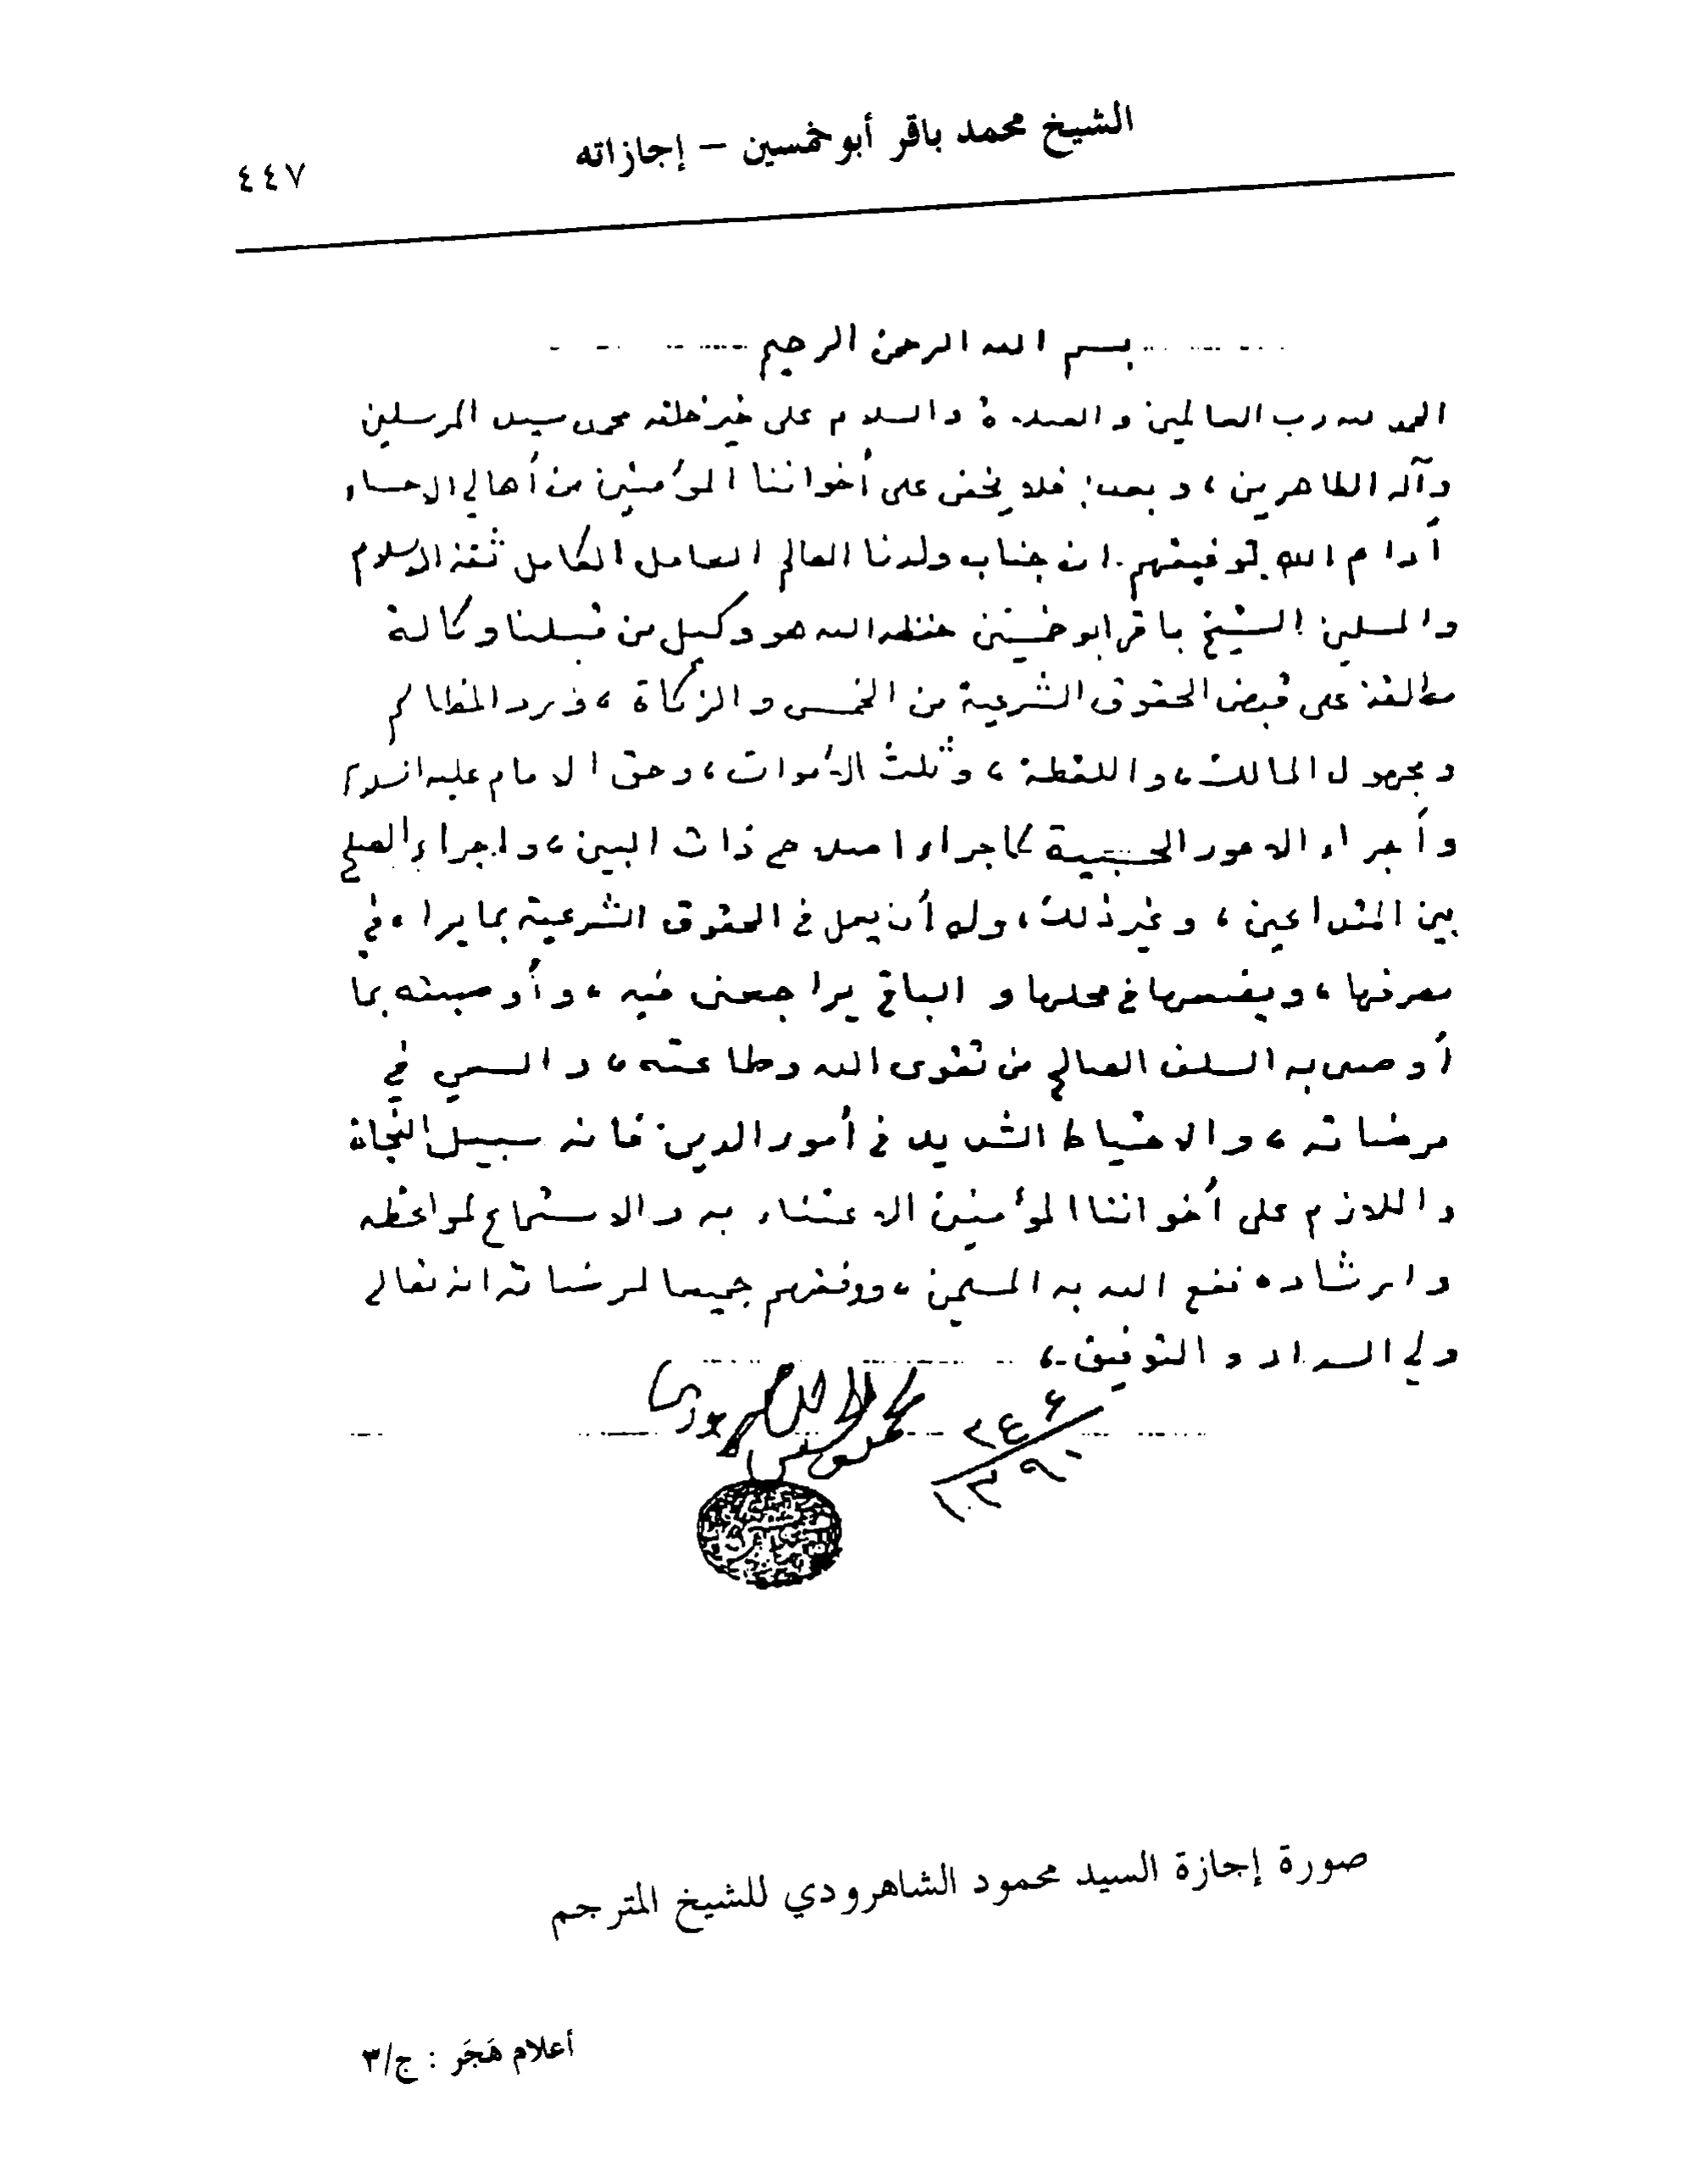 الشيخ محمد باقر أبو خمسين – إجازاته
٤٤٧
بسم الله الرحمن الرحيم
الحمد لله رب العالمين والصلاة والسلام على خير خلقه محمد سيد المرسلين
وآله الطاهرين، وبعد: فلا يخفى على أخواننا المؤمنين من أهالي الاحساء
أدام الله توفيقهم. ان جناب ولدنا العالم العامل الكامل ثقة الاسلام
والمسلمين الشيخ باقر ابو خمسين حفظه الله هو وكيل من قبلنا وكالة
مطلقة على قبض الحقوق الشرعية من الخمس والزكاة، ورد المظالم
ومجهول المالك، واللقطة، وثلث الأموات، وحق الامام عليه السلام
وأجراء الامور الحسبية كاجراء اصلاح ذات البين، واجراء الصلح
بين المتداعين، وغير ذلك، وله أن يعمل في الحقوق الشرعية بما يراه في
مصرفها، ويضعها في محلها و الباقي يراجعني فيه، وأوصيته بما
أوصى به السلف الصالح من تقوى الله وطاعته، والسعي في
مرضاته، والاحتياط الشديد في أمور الدين فانه سبيل النجاة
واللازم على أخواننا المؤمنين الاعتناء به والاستماع لمواعظه
وارشاده نفع الله به المسلمين، ووفقهم جميعا لمرضاته انه تعالى
ولي السداد والتوفيق،
محمود الحسيني الشاهرودي
١٣٩٠
صورة إجازة السيد محمود الشاهرودي للشيخ المترجم
أعلام هَجَر : ج/٣